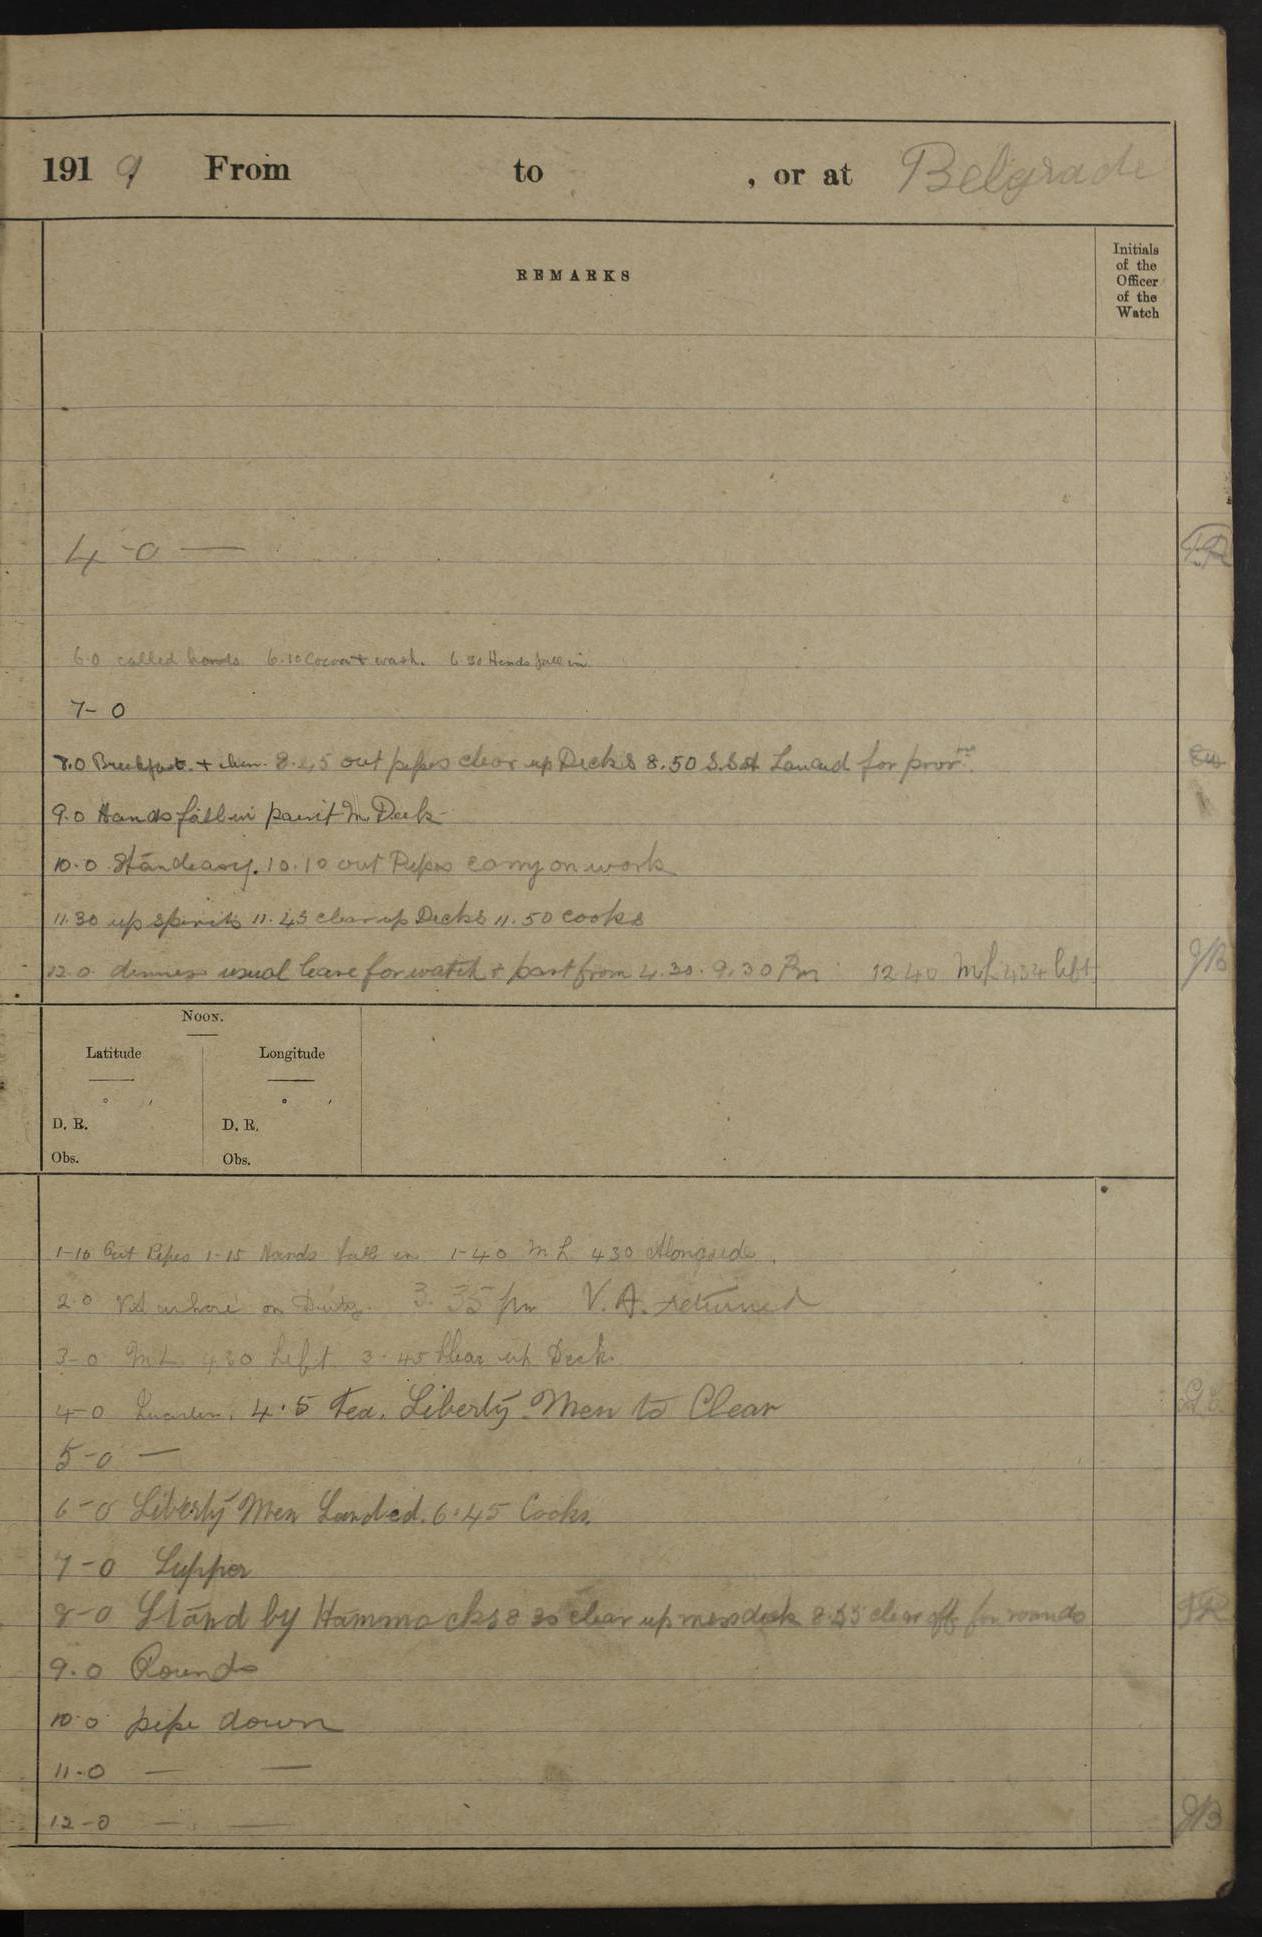 1919 From to , or at Belgrade
REMARKS
Initials of the Officer of the Watch
4-0 —
6.0 called hands. 6.10 Cocoa + wash. 6.30 Hands fall in
7-0
8.0 Breakfast + clean. 8.45 out pipes clear up Decks 8.50 S.S.A Landed for provns.
9.0 Hands fall in paint M. Deck
10.0 Standeasy. 10.10 out Pipes carry on work
11.30 up spirits 11.45 clear up Decks 11.50 cooks
12.0 dinner usual leave for watch + part from 4.30. 9.30 Pm 12 40 ML 434 left
JB
Noon.
Latitude Longitude
° ′ ° ′
D. R. D. R.
Obs. Obs.
1-10 Out Pipes 1-15 Hands fall in 1-40 ML 430 Alongside.
2.0 on Duty. 3.35 pm V.A. returned
3-0 ML 430 Left 3.45 Clear up Deck.
4-0 Quarters. 4.5 Tea. Liberty Men to Clear
5-0 —
6-0 Liberty Men Landed. 6.45 Cooks.
7-0 Supper
8-0 Stand by Hammocks 8 30 clear up messdeck 8.55 clear off for rounds
9.0 Rounds
10.0 pipe down
11-0 — —
12-0 — —
JB